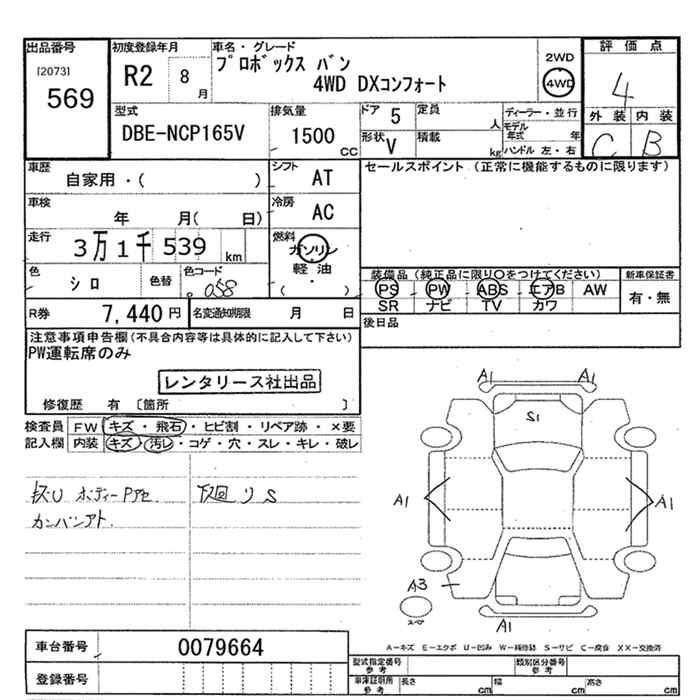 出品番号 初度登録年月 車名・グレード
[2073] 569
R2 8月
プロボックス バン
4WD DXコンフォート
2WD
4WD
評価点
4
外装 内装
C B
型式 DBE-NCP165V
排気量 1500 CC
ドア 5 定員 人
形状 V 積載 kg
ディーラー・並行
モデル年式 年
ハンドル 左・右
車歴 自家用・( )
シフト AT
セールスポイント (正常に機能するものに限ります)
車検 年 月( 日)
冷房 AC
走行 3万1千539 km
燃料 ガソリン
軽油
( ・ )
色 シロ 色替 色コード 058
装備品(純正品に限り○をつけてください) 新車保証書
PS PW ABS エアB AW
SR ナビ TV カワ
有・無
R券 7,440円 名変通知期限 月 日
後日品
注意事項申告欄(不具合内容等は具体的に記入して下さい)
PW運転席のみ
レンタリース社出品
修復歴 有 〔箇所 〕
検査員 FW キズ・飛石・ヒビ割・リペア跡・×要
記入欄 内装 キズ・汚レ・コゲ・穴・スレ・キレ・破レ
ボディー
カンバンアト.
下廻り S
A1 A1
S1
A1 A1
A3
スペア
A1
A-キズ E-エクボ U-凹み W-補修跡 S-サビ C-腐食 XX-交換済
車台番号 0079664
登録番号
型式指定番号 参考 類別区分番号 参考
車庫証明用 参考 長さ cm 幅 cm 高さ cm